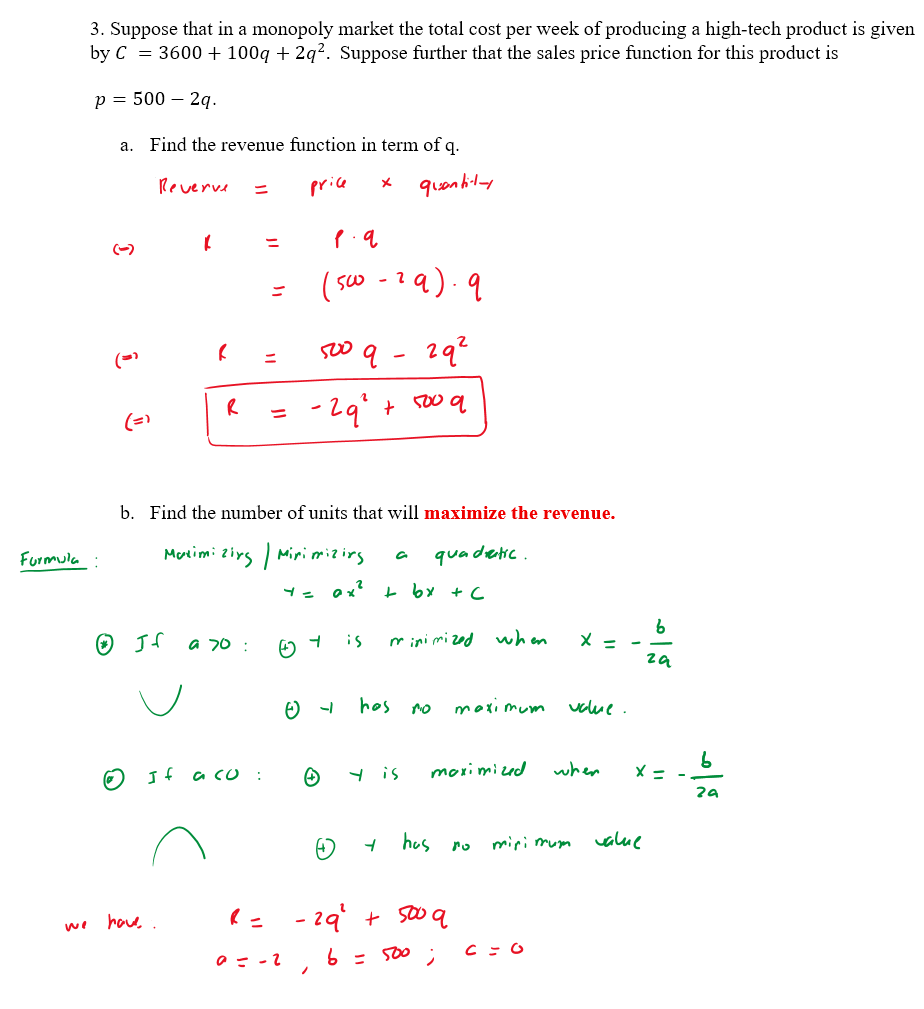 3. Suppose that in a monopoly market the total cost per week of producing a high-tech product is given
by C = 3600 + 100q + 2q². Suppose further that the sales price function for this product is
p = 500 − 2q.
a. Find the revenue function in term of q.
Revenue = price × quantity
(=) R = p · q
= (500 - 2q) · q
(=) R = 500q - 2q²
(=) R = -2q² + 500q
b. Find the number of units that will maximize the revenue.
Formula : Maximizing / Minimizing a quadratic.
y = ax² + bx + c
⊛ If a > 0 : ⊕ y is minimized when x = - b/2a
⊕ y has no maximum value.
⊛ If a < 0 : ⊕ y is maximized when x = - b/2a
⊕ y has no minimum value
we have. R = -2q² + 500q
a = -2 , b = 500 ; c = 0